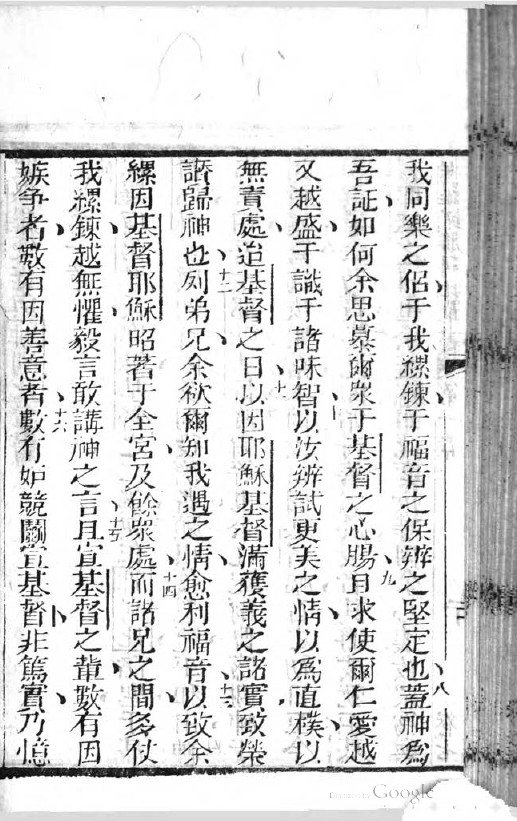 我同樂之侶于我縲鍊于福音之保辨之堅定也蓋神爲
吾証如何余思慕爾衆于基督之心腸且求使爾仁愛越
又越盛于識于諸味智以汝辨試更美之情以爲直樸以
無責處迨基督之日以因耶穌基督滿獲義之諸實致榮
讃歸神也列弟兄余欲爾知我遇之情愈利福音以致余
縲因基督耶穌昭著于全宮及餘衆處而諸兄之間多仗
我縲鍊越無懼毅言敢講神之言且宣基督之輩數有因
嫉争者數有因善意者數有妒競鬭宣基督非篤實乃憶
八
九
十
十一
十二
十三
十四
十五
十六
Digitized by Google